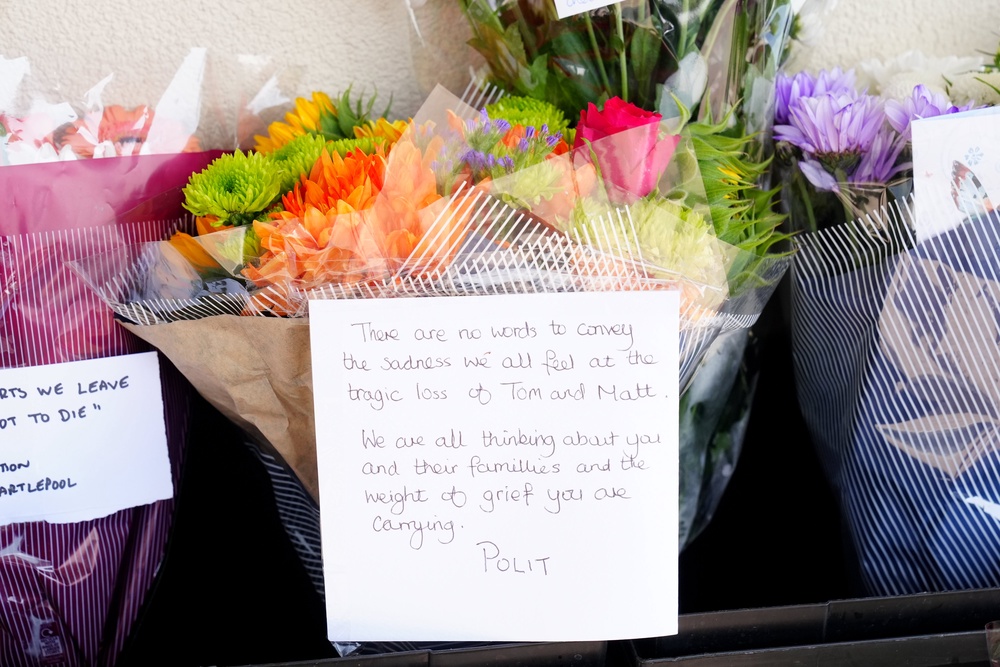 There are no words to convey
the sadness we all feel at the
tragic loss of Tom and Matt.
We are all thinking about you
and their famillies and the
weight of grief you are
carrying.
POLIT
RTS WE LEAVE
OT TO DIE"
TION
ARTLEPOOL